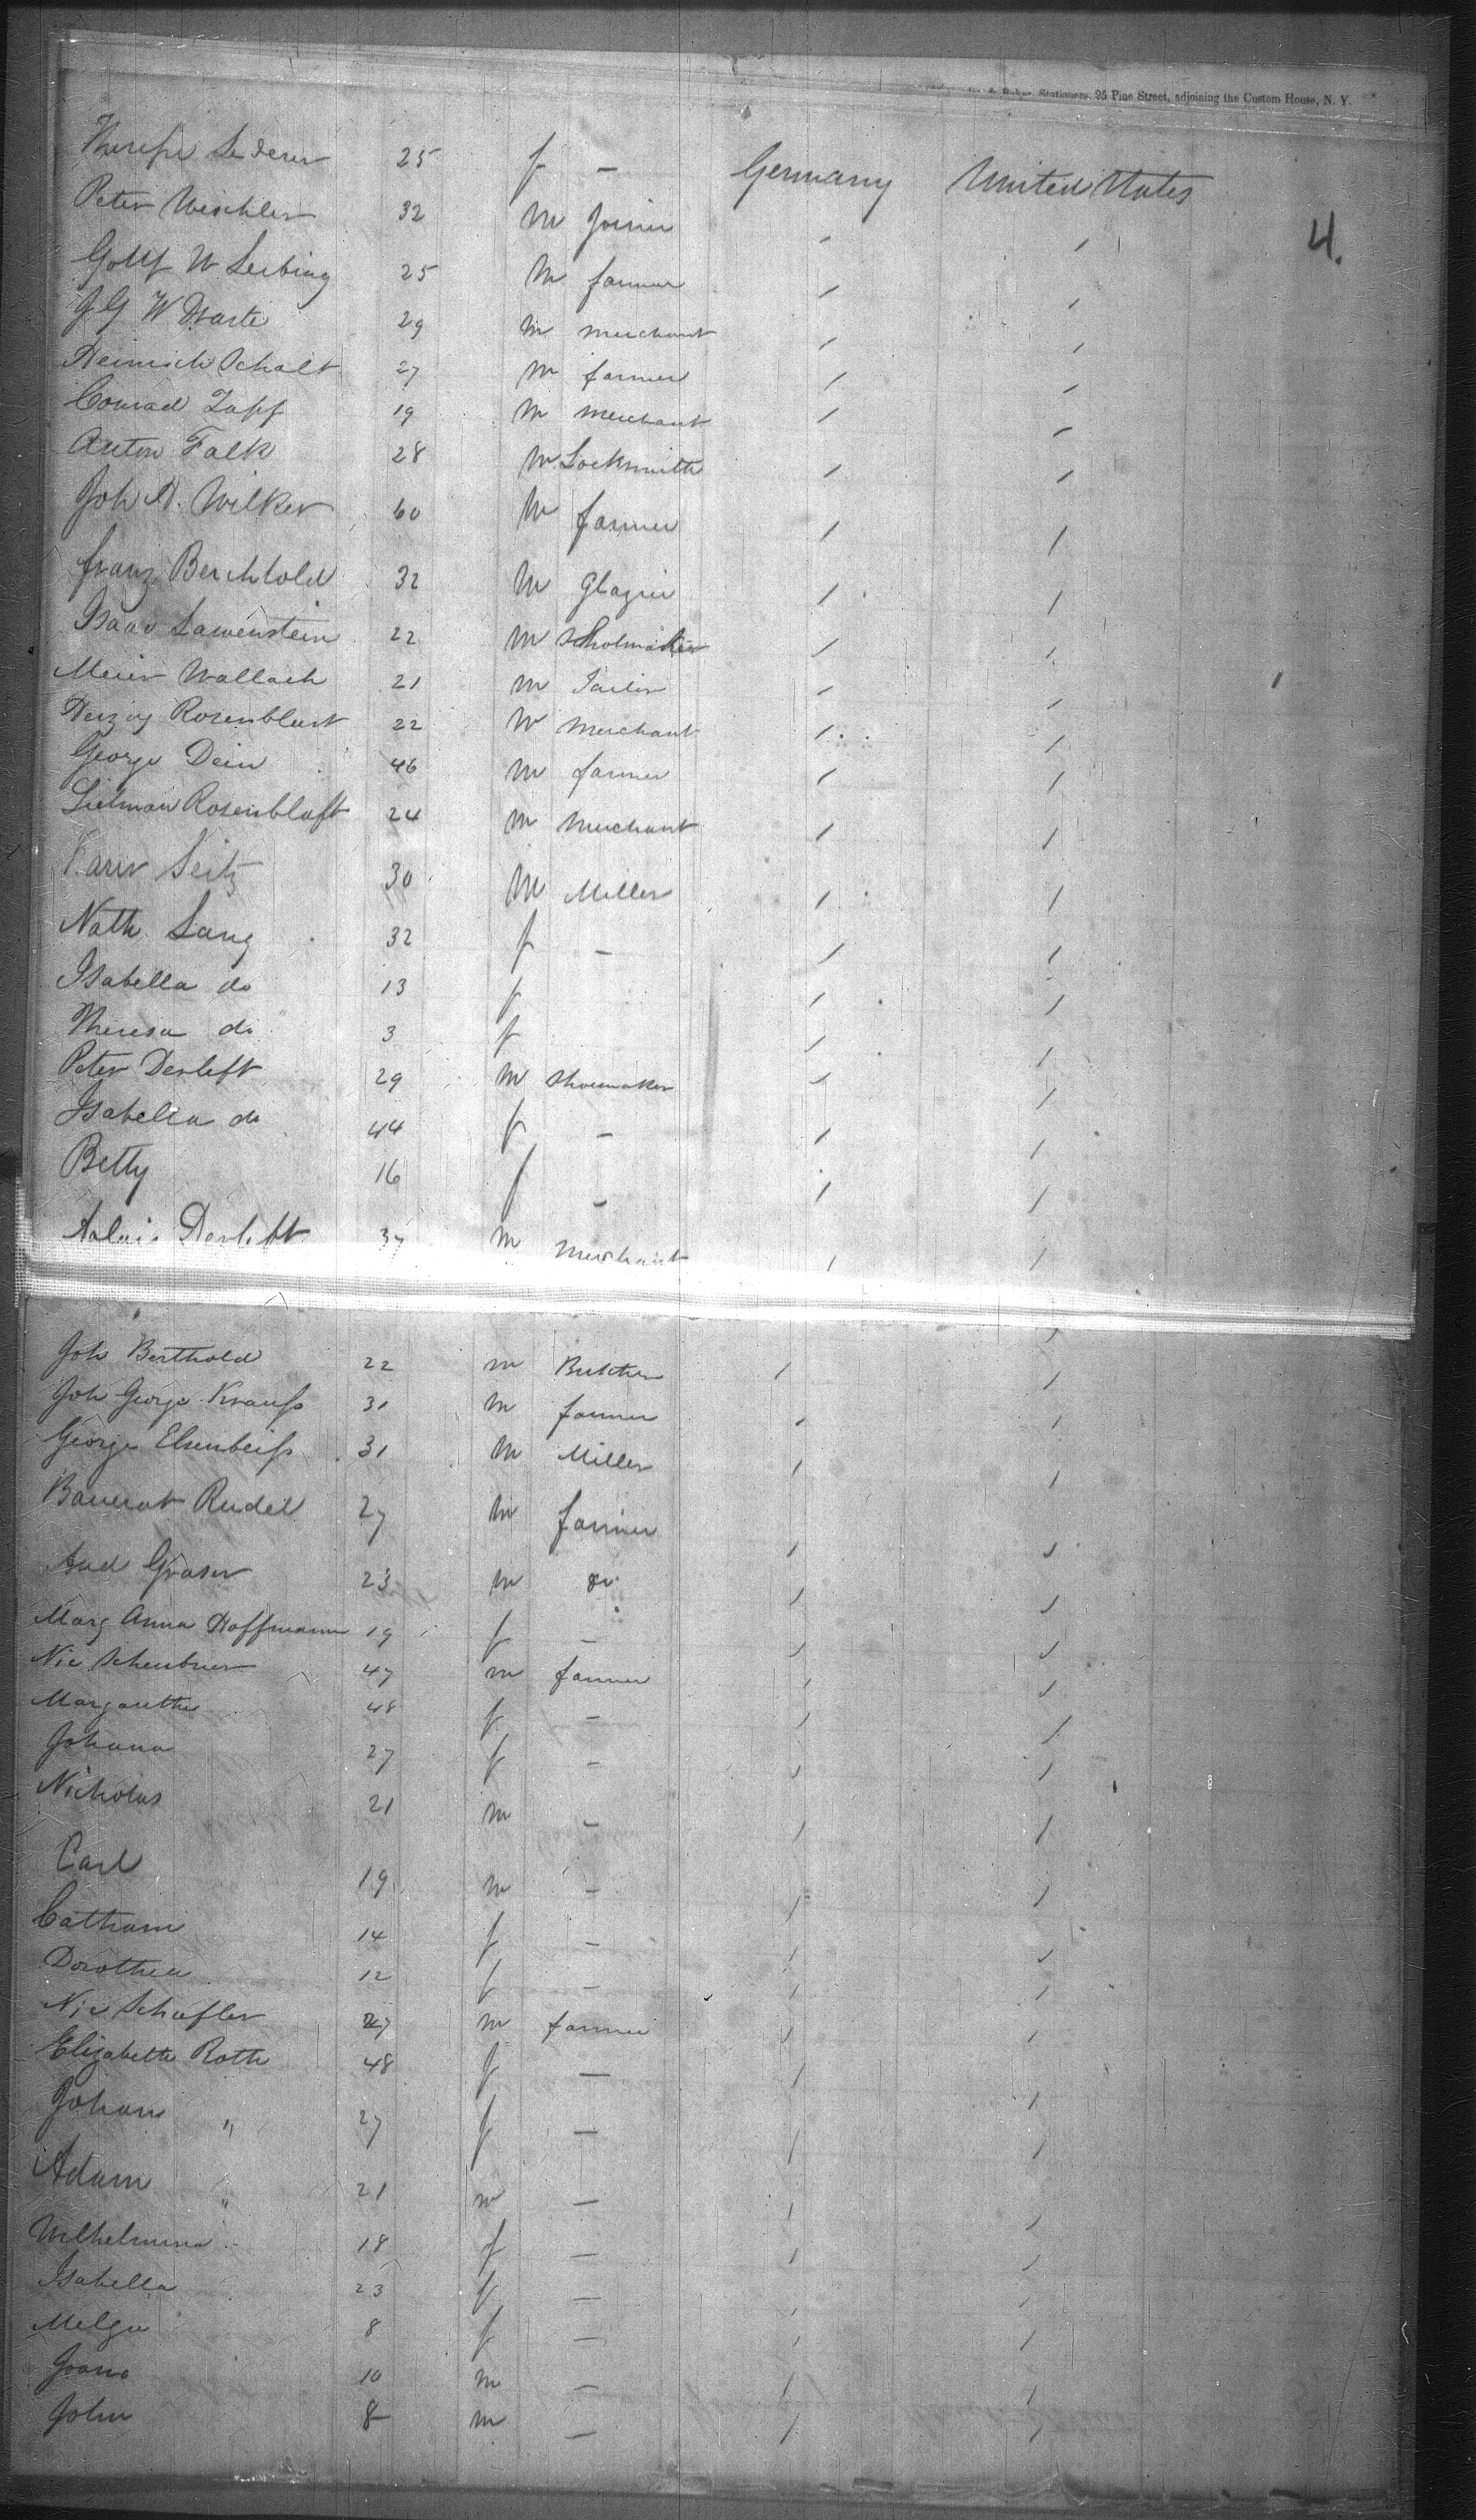 & Baker, Stationers, 25 Pine Street, adjoining the Custom House, N. Y.
4.
Therese Lederer 25 f — Germany United States
Peter Weichler 32 m Joiner / /
Gottf W Leibing 25 m farmer / /
J G W Dwarte 29 m merchant / /
Heinrich Schalt 27 m farmer / /
Conrad Zapf 19 m merchant / /
Anton Falk 28 m Locksmith / /
Joh A. Wilker 60 m farmer / /
franz Berchtold 32 m Glazier / /
Isaac Lawenstein 22 m Shoemaker / /
Meier Wallach 21 m Tailor / /
Herzog Rosenblatt 22 m merchant / /
George Dein 46 m farmer / /
Lieman Rosenblatt 24 m merchant / /
Seitz 30 m Miller / /
Nath Lang 32 f — / /
Isabella do 13 f / /
Theresa do 3 f / /
Peter Derleft 29 m shoemaker / /
Isabella do 44 f — / /
Betty 16 f — / /
Derleft 37 m merchant / /
Joh Berthold 22 m Butcher / /
Joh George Krauss 31 m farmer / /
George Elsenbeiss 31 m Miller / /
Rudel 27 m farmer / /
And Graser 23 m do / /
Marg Anna Hoffmann 19 f — / /
Nic Scheubner 47 m farmer / /
Margarethe 48 f — / /
Johana 27 f — / /
Nicholas 21 m — / /
Carl 19 m — / /
Catharin 14 f — / /
Dorothea 12 f — / /
Nic Schufler 27 m farmer / /
Elizabeth Roth 48 f — / /
Johan " 27 f — / /
Adam " 21 m — / /
Wilhelmina " 18 f — / /
Isabella 23 f — / /
Melga 8 f — / /
10 m — / /
John 8 m — / /